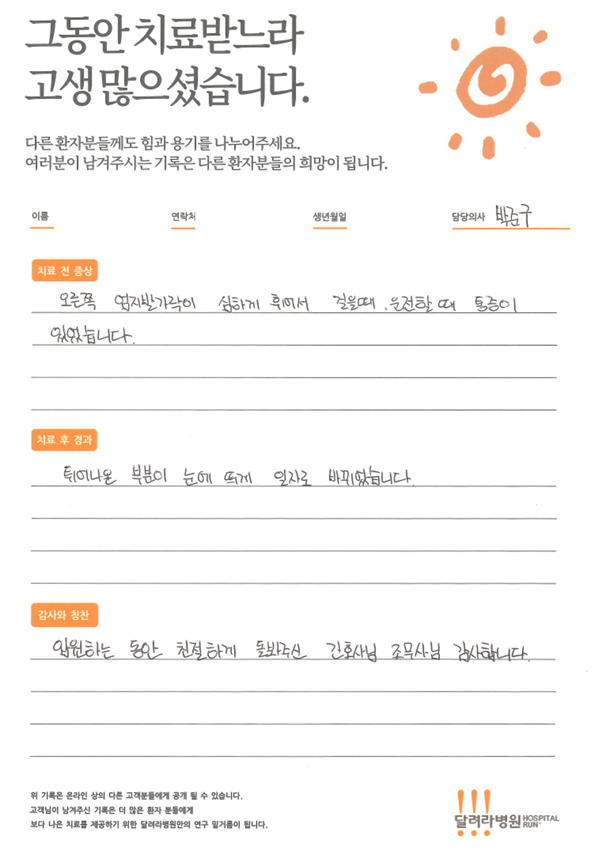 그동안 치료받느라
고생 많으셨습니다.
다른 환자분들께도 힘과 용기를 나누어주세요.
여러분이 남겨주시는 기록은 다른 환자분들의 희망이 됩니다.
이름 연락처 생년월일 담당의사 박준구
치료 전 증상
오른쪽 엄지발가락이 심하게 휘어서 걸을때, 운전할 때 통증이
있었습니다.
치료 후 경과
튀어나온 부분이 눈에 띄게 일자로 바뀌었습니다.
감사와 칭찬
입원하는 동안 친절하게 돌봐주신 간호사님 조무사님 감사합니다.
위 기록은 온라인 상의 다른 고객분들에게 공개 될 수 있습니다.
고객님이 남겨주신 기록은 더 많은 환자 분들에게
보다 나은 치료를 제공하기 위한 달려라병원만의 연구 밑거름이 됩니다.
달려라병원 HOSPITAL RUN